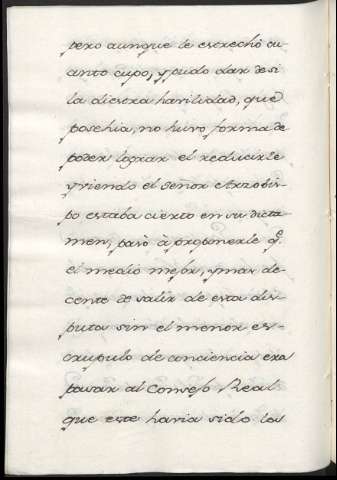 pero aunque le estrechó cu
anto cupo, y pudo dar de sí
la diestra havilidad, que
posehia, no huvo forma de
poder lograr el reducirle
y viendo el Señor Arzobis-
po estaba cierto en su dicta
men, pasó à proponerle q.e
el medio mejor, y mas de-
cente de salir de esta dis-
puta sin el menor es-
crupulo de conciencia era
pasar al Consejo Real
que este havia sido los